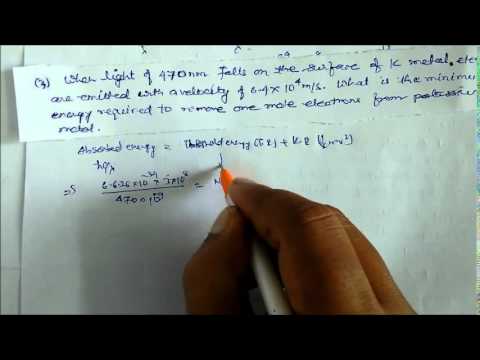 (3) When light of 470nm falls on the surface of K metal, elec
are emitted with a velocity of 6.4 × 10⁴ m/s. What is the minimu
energy required to remove one mole electrons from potassium
metal.
Absorbed energy = Threshold energy (T.E) + K.E (½mv²)
hc/λ
⇒ 6.626×10⁻³⁴ × 3×10⁸ / 470×10⁻⁹ =